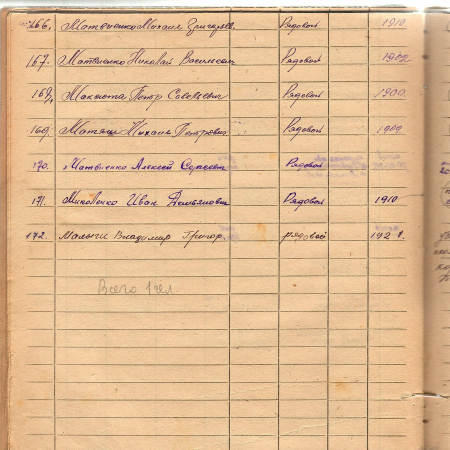 166. Матвиенко Михаил Григорьев. Рядовой 1910.
167. Матвиенко Николай Васильевич Рядовой 1902
168, Макюта Петр Савельевич Рядовой 1900.
169. Матяш Михаил Петрович Рядовой 1909.
170. Матвиенко Алексей Сергеев. Рядовой
171. Миколенко Иван Демьянович Рядовой 1910
172. Малыги Владимир Григор. рядовой 192
Всего 1 чел.